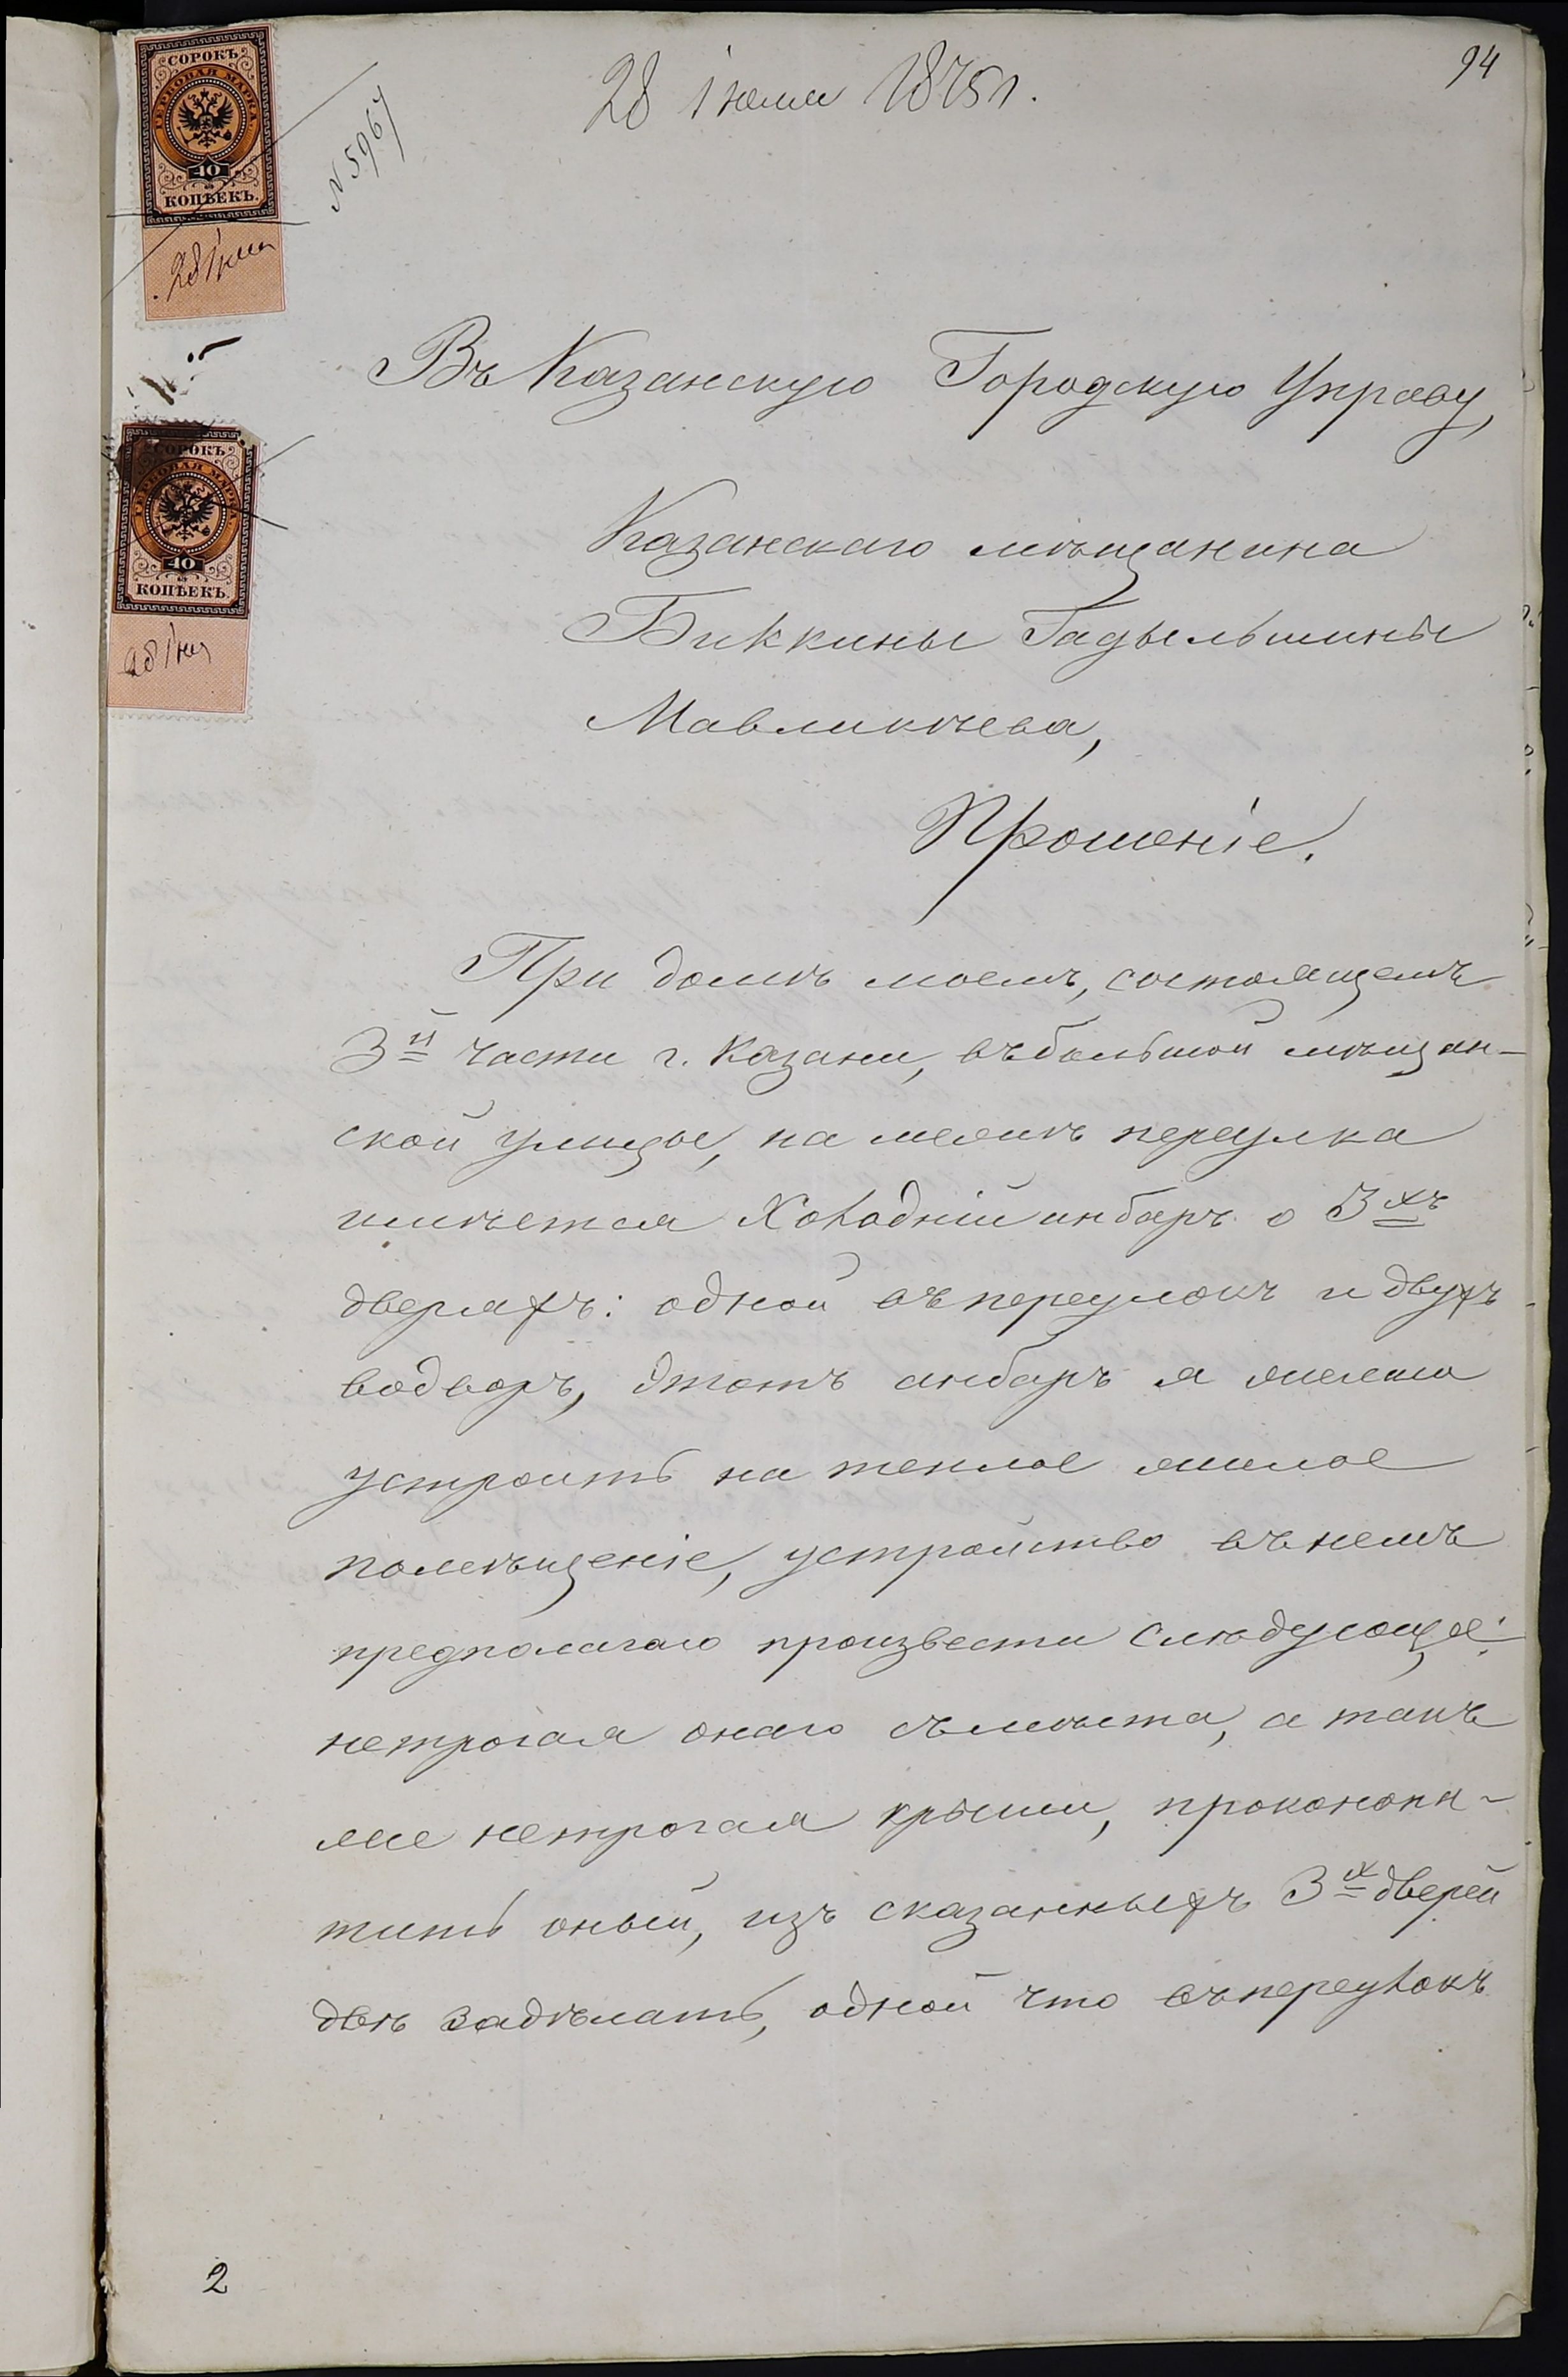 94
28 Іюня 1875 г.
N 5967
СОРОКЪ
ГЕРБОВАЯ МАРКА
40
КОПѢЕКЪ.
28 Іюня
Въ Казанскую Городскую Управу,
СОРОКЪ
ГЕРБОВАЯ МАРКА
40
КОПѢЕКЪ.
28 Іюня
Казанскаго мѣщанина
Биккины Гадыльшины
Мавликѣева,
Прошеніе.
При домѣ моемъ, состоящемъ
3й части г. Казани, въ большой мѣщан-
ской улицы, на межѣ переулка
имѣется Холодній анбаръ о 3хъ
дверяхъ: одной въ переулокъ и двухъ
водворъ, Этотъ анбаръ я желаю
устроить на теплое жилое
помѣщеніе, устройство въ немъ
предполагаю произвести Слюдующее:
нетрогая онаго съ мѣста, а такъ
же нетрогая крыши, проконопа-
тить оный, изъ сказанныхъ 3х дверей
двѣ задѣлать, одной что въ переулокъ
2